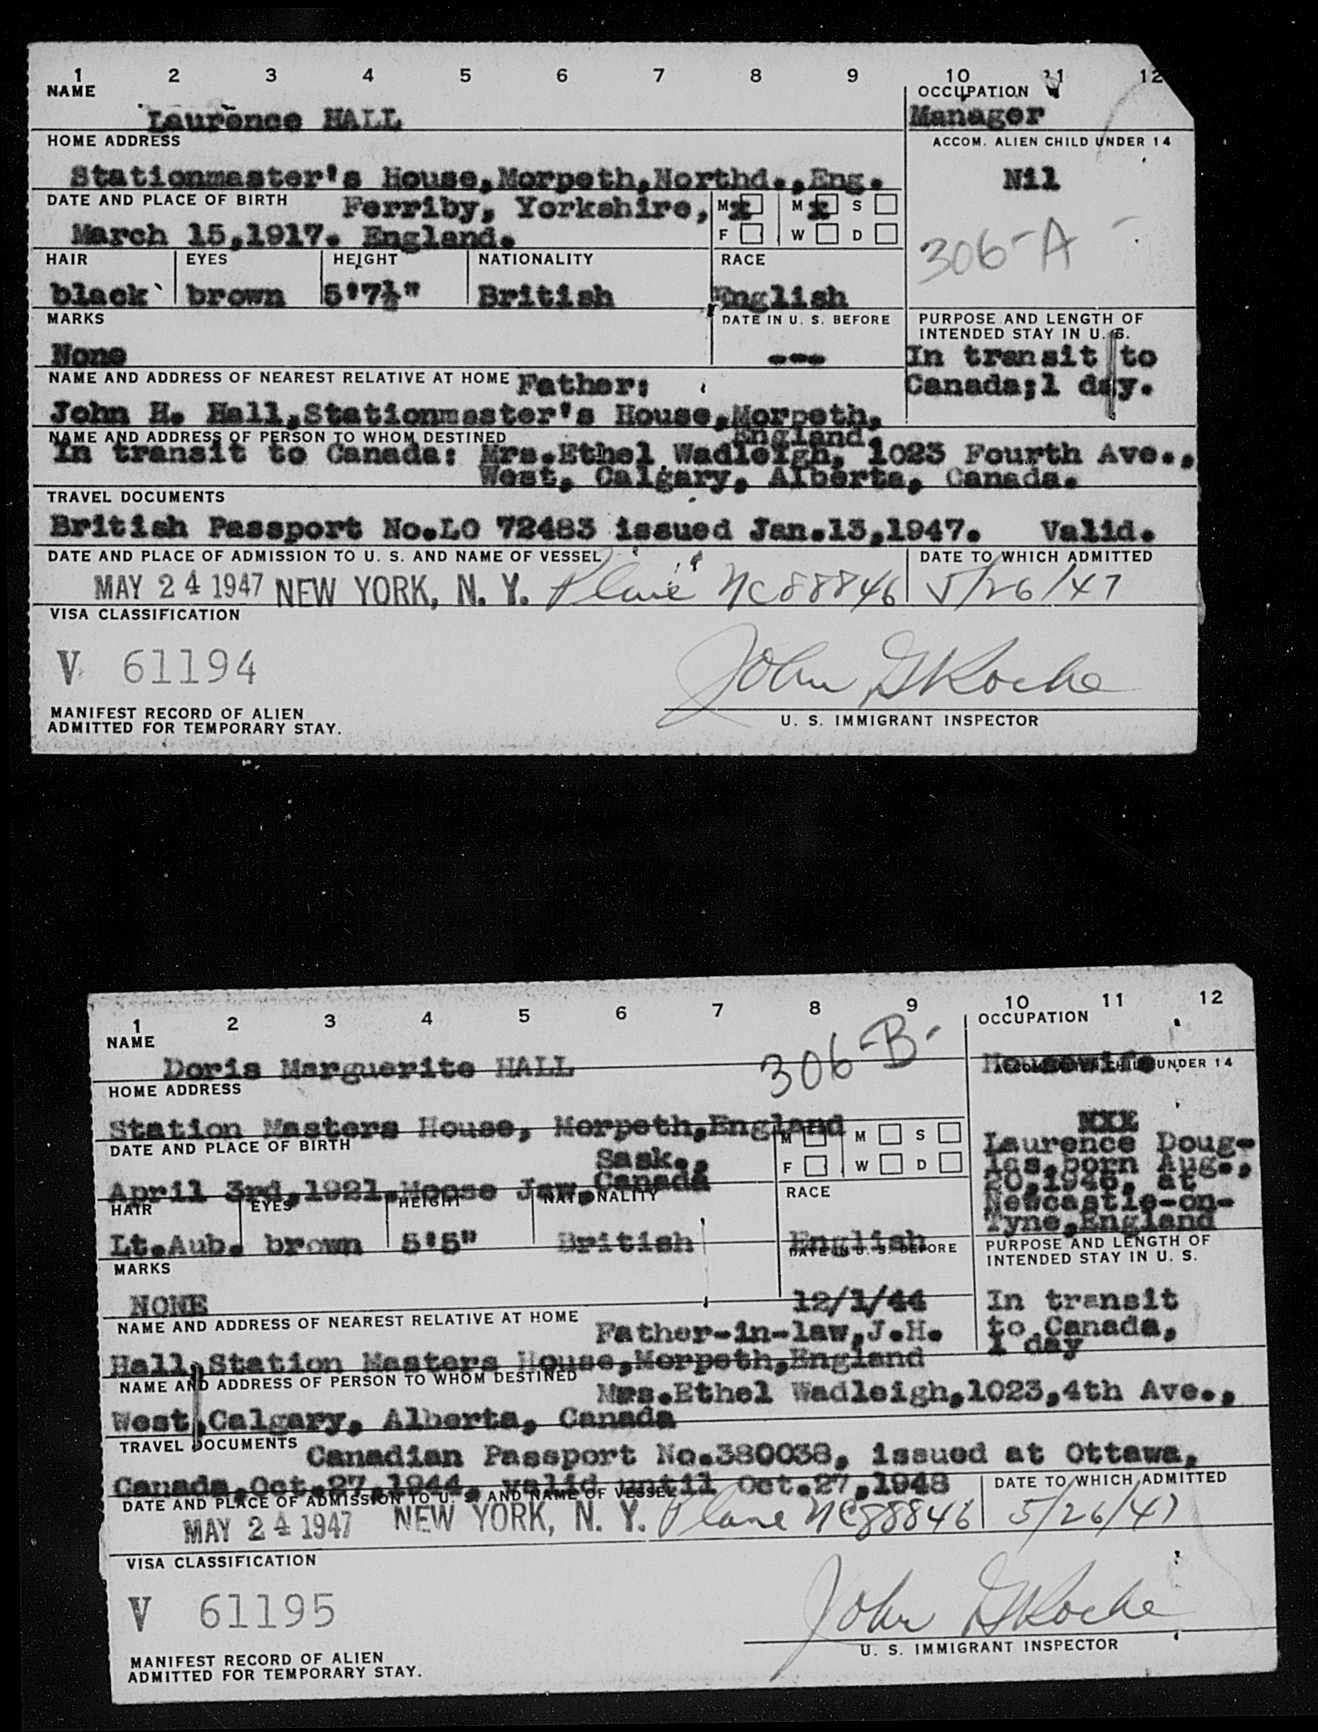 1 2 3 4 5 6 7 8 9 10 11 12
NAME OCCUPATION
Laurence HALL Manager
HOME ADDRESS ACCOM. ALIEN CHILD UNDER 14
Stationmaster's House,Morpeth,Northd.,Eng. Nil
DATE AND PLACE OF BIRTH Ferriby, Yorkshire, M x M x S
March 15,1917. England. F W D
306-A
HAIR EYES HEIGHT NATIONALITY RACE
black brown 5'7½" British English
MARKS DATE IN U. S. BEFORE PURPOSE AND LENGTH OF
INTENDED STAY IN U. S.
None --- In transit to
NAME AND ADDRESS OF NEAREST RELATIVE AT HOME Father: Canada;1 day.
John H. Hall,Stationmaster's House,Morpeth,
England.
NAME AND ADDRESS OF PERSON TO WHOM DESTINED
In transit to Canada: Mrs.Ethel Wadleigh, 1023 Fourth Ave.,
West, Calgary, Alberta, Canada.
TRAVEL DOCUMENTS
British Passport No.LO 72483 issued Jan.13,1947. Valid.
DATE AND PLACE OF ADMISSION TO U. S. AND NAME OF VESSEL DATE TO WHICH ADMITTED
MAY 24 1947 NEW YORK, N. Y. Plane NC88846 5/26/47
VISA CLASSIFICATION
V 61194 John G Roche
MANIFEST RECORD OF ALIEN
ADMITTED FOR TEMPORARY STAY. U. S. IMMIGRANT INSPECTOR
1 2 3 4 5 6 7 8 9 10 11 12
NAME OCCUPATION
Doris Marguerite HALL 306-B- Housewife
HOME ADDRESS UNDER 14
Station Masters House, Morpeth,England NXX
DATE AND PLACE OF BIRTH M M S
Sask., F W D
April 3rd,1921,Moose Jaw, Canada
Laurence Doug-
las,born Aug.,
20,1946, at
Newcastle-on-
Tyne,England
HAIR EYES HEIGHT NATIONALITY RACE
Lt.Aub. brown 5'5" British English
MARKS DATE IN U. S. BEFORE PURPOSE AND LENGTH OF
INTENDED STAY IN U. S.
NONE 12/1/44 In transit
to Canada,
1 day
NAME AND ADDRESS OF NEAREST RELATIVE AT HOME Father-in-law,J.H.
Hall,Station Masters House,Morpeth,England
NAME AND ADDRESS OF PERSON TO WHOM DESTINED Mrs.Ethel Wadleigh,1023,4th Ave.,
West,Calgary, Alberta, Canada
TRAVEL DOCUMENTS Canadian Passport No.380038, issued at Ottawa,
Canada,Oct.27,1944, valid until Oct.27,1948
DATE AND PLACE OF ADMISSION TO U. S. AND NAME OF VESSEL DATE TO WHICH ADMITTED
MAY 24 1947 NEW YORK, N. Y. Plane NC88846 5/26/47
VISA CLASSIFICATION
V 61195 John G Roche
U. S. IMMIGRANT INSPECTOR
MANIFEST RECORD OF ALIEN
ADMITTED FOR TEMPORARY STAY.